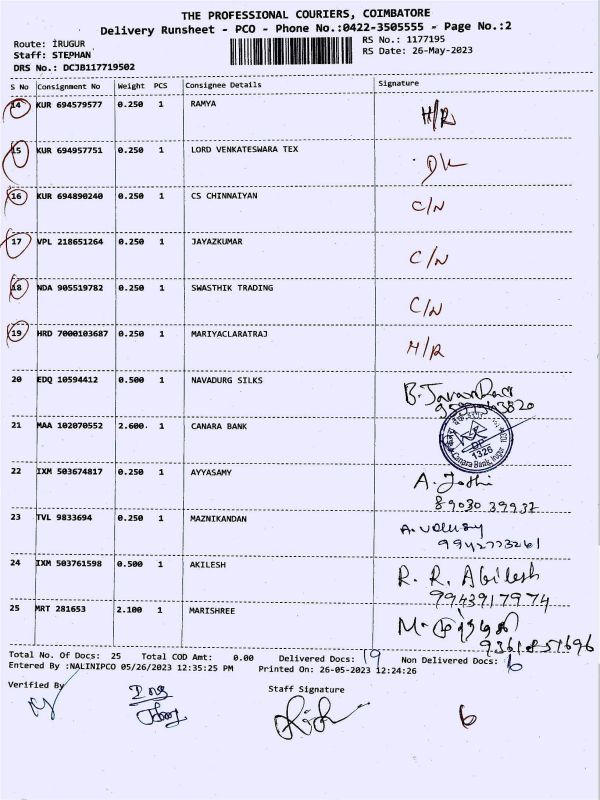 THE PROFESSIONAL COURIERS, COIMBATORE
Delivery Runsheet - PCO - Phone No.:0422-3505555 - Page No.:2
Route: IRUGUR RS No.: 1177195
Staff: STEPHAN RS Date: 26-May-2023
DRS No.: DCJB117719502
S No Consignment No Weight PCS Consignee Details Signature
14 KUR 694579577 0.250 1 RAMYA H/R
15 KUR 694957751 0.250 1 LORD VENKATESWARA TEX D/L
16 KUR 694890240 0.250 1 CS CHINNAIYAN C/N
17 VPL 218651264 0.250 1 JAYAZKUMAR C/N
18 NDA 905519782 0.250 1 SWASTHIK TRADING C/N
19 HRD 7000103687 0.250 1 MARIYACLARATRAJ H/R
20 EDQ 10594412 0.500 1 NAVADURG SILKS
21 MAA 102070552 2.600 1 CANARA BANK
DP 1326
Canara Bank, Irugur
22 IXM 503674817 0.250 1 AYYASAMY A. Jothi
89030 39937
23 TVL 9833694 0.250 1 MAZNIKANDAN
9942773261
24 IXM 503761598 0.500 1 AKILESH R. R. Akilesh
9943917974
25 MRT 281653 2.100 1 MARISHREE
9361851696
Total No. Of Docs: 25 Total COD Amt: 0.00 Delivered Docs: 19 Non Delivered Docs: 6
Entered By :NALINIPCO 05/26/2023 12:35:25 PM Printed On: 26-05-2023 12:24:26
Verified By Staff Signature
6